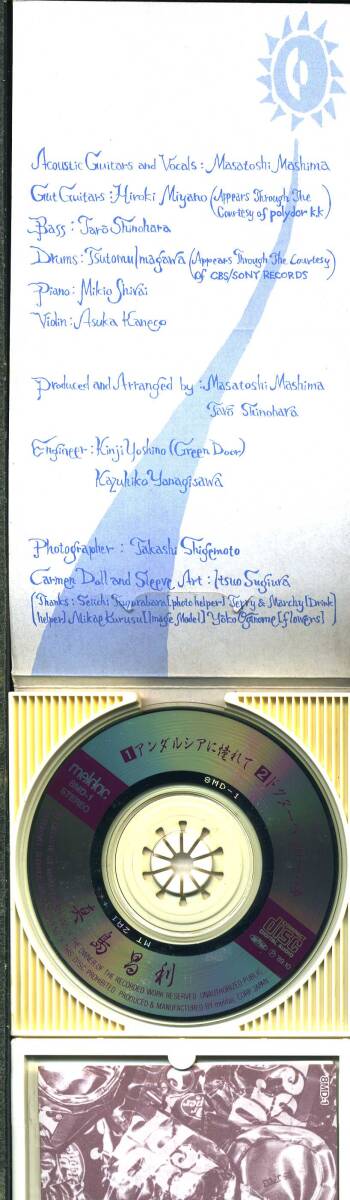 Acoustic Guitars and Vocals : Masatoshi Mashima
Gut Guitars : Hiroki Miyano (Appears Through The
Courtesy of polydor kk)
Bass : Tarō Shinohara
Drums : Tsutomu Imagawa (Appears Through The Courtesy
Of CBS/SONY RECORDS)
Piano : Mikio Shirai
Violin : Asuka Kaneco
Produced and Arranged by : Masatoshi Mashima
Tarō Shinohara
Engineer : Kinji Yoshino (Green Door)
Kazuhiko Yanagisawa
Photographer : Takashi Shigemoto
Carmen Doll and Sleeve Art : Itsuo Sugiura
(Thanks : Seiichi [photo helper] Terry & Marchy [Drink
helper] Mikae Kurusu [Image Model] Yoko Oginome [flowers])
1 アンダルシアに憧れて 2 ドクター
meldac
8MD-1
STEREO
8MD-1
COMPACT
disc
DIGITAL AUDIO
89.10
MT 2A1
真島昌利
THE OWNER OF THE RECORDED WORK RESERVED UNAUTHORIZED PUBLIC
THIS DISC PROHIBITED PRODUCED & MANUFACTURED BY meldac CORP. JAPAN
8MD-1